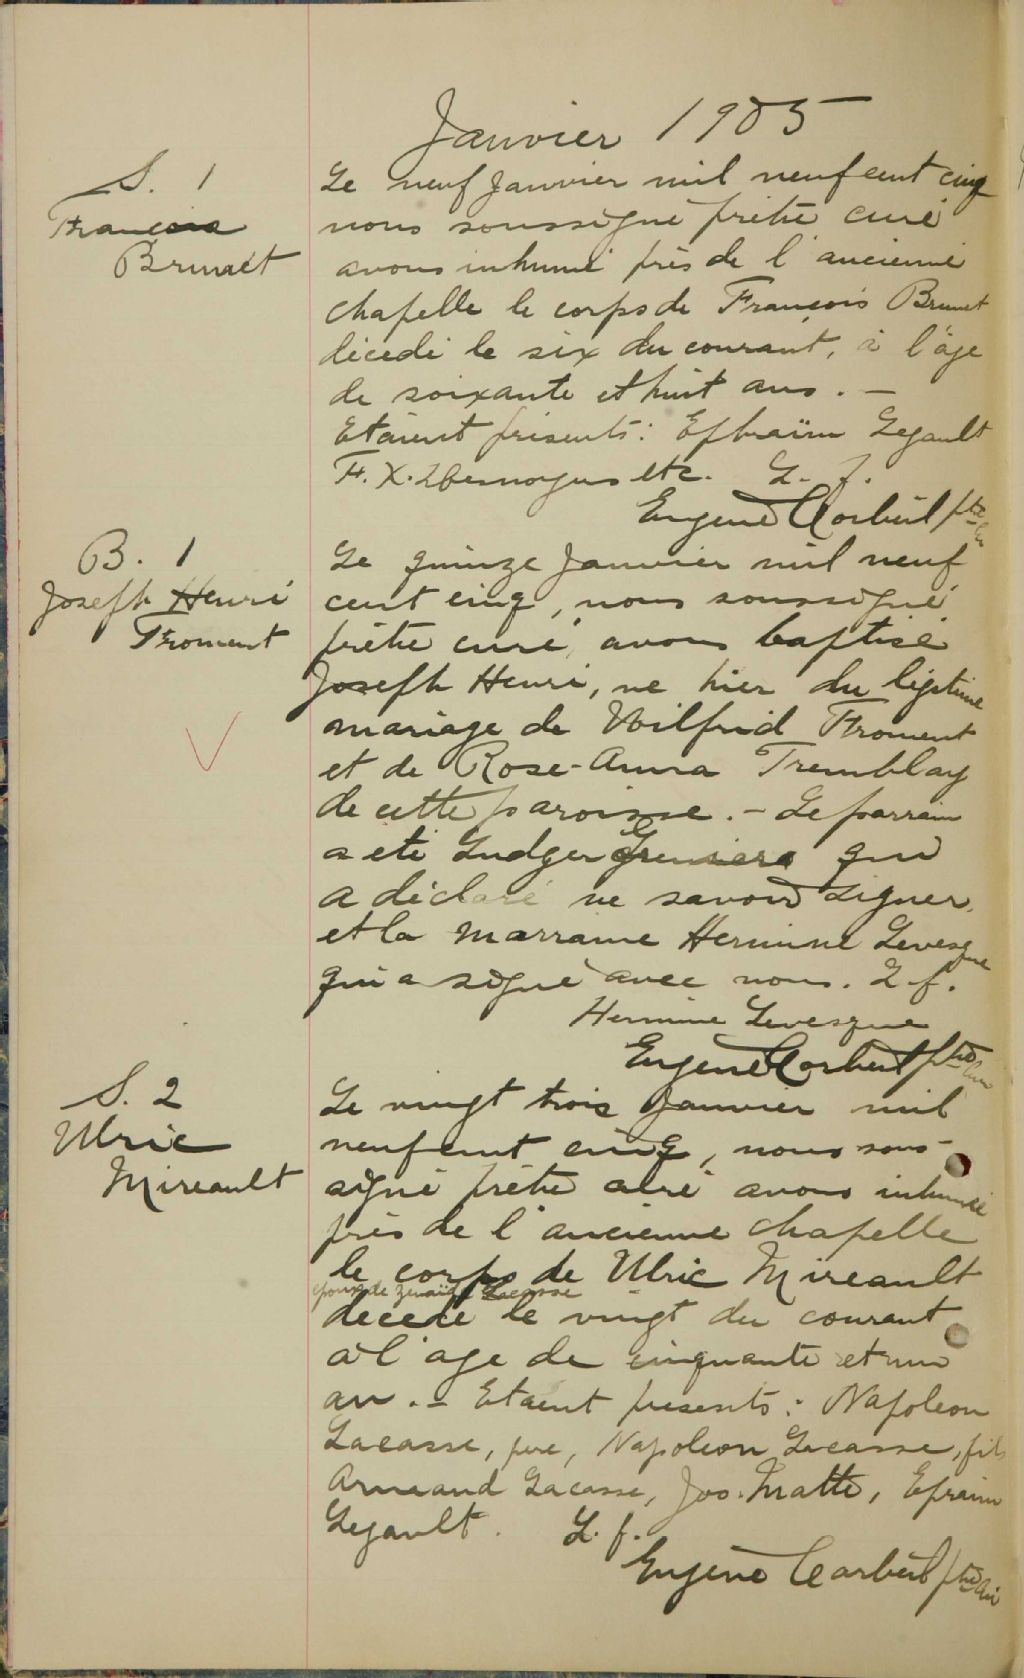 Janvier 1905
S. 1
François
Brunet
Le neuf Janvier mil neuf cent cinq
nous soussigné prêtre curé
avons inhumé près de l'ancienne
chapelle le corps de François Brunet
décédé le six du courant, à l'âge
de soixante et huit ans. —
Etaient présents: Ephraïm Legault
F. X. etc. L. f.
Eugène Corbeil ptre
B. 1
Joseph Henri
Froment
Le quinze Janvier mil neuf
cent cinq, nous soussigné
prêtre curé, avons baptisé
Joseph Henri, né hier du légitime
mariage de Wilfrid Froment
et de Rose-Anna Tremblay
de cette paroisse. — Le parrain
a été Ludger qui
a déclaré ne savoir signer,
et la marraine Hermine Levesque
qui a signé avec nous. L. f.
Hermine Levesque
Eugène Corbeil ptre
S. 2
Ulric
Mireault
Le vingt trois Janvier mil
neuf cent cinq, nous sous-
signé prêtre curé avons inhumé
près de l'ancienne chapelle
le corps de Ulric Mireault
époux de Zénaïde Lacasse
décédé le vingt du courant
à l'age de cinquante et un
an. — Etaient présents: Napoleon
Lacasse, père, Napoleon Lacasse, fils
Armand Lacasse, Jos. Matte, Efraim
Legault. L. f.
Eugène Corbeil ptre